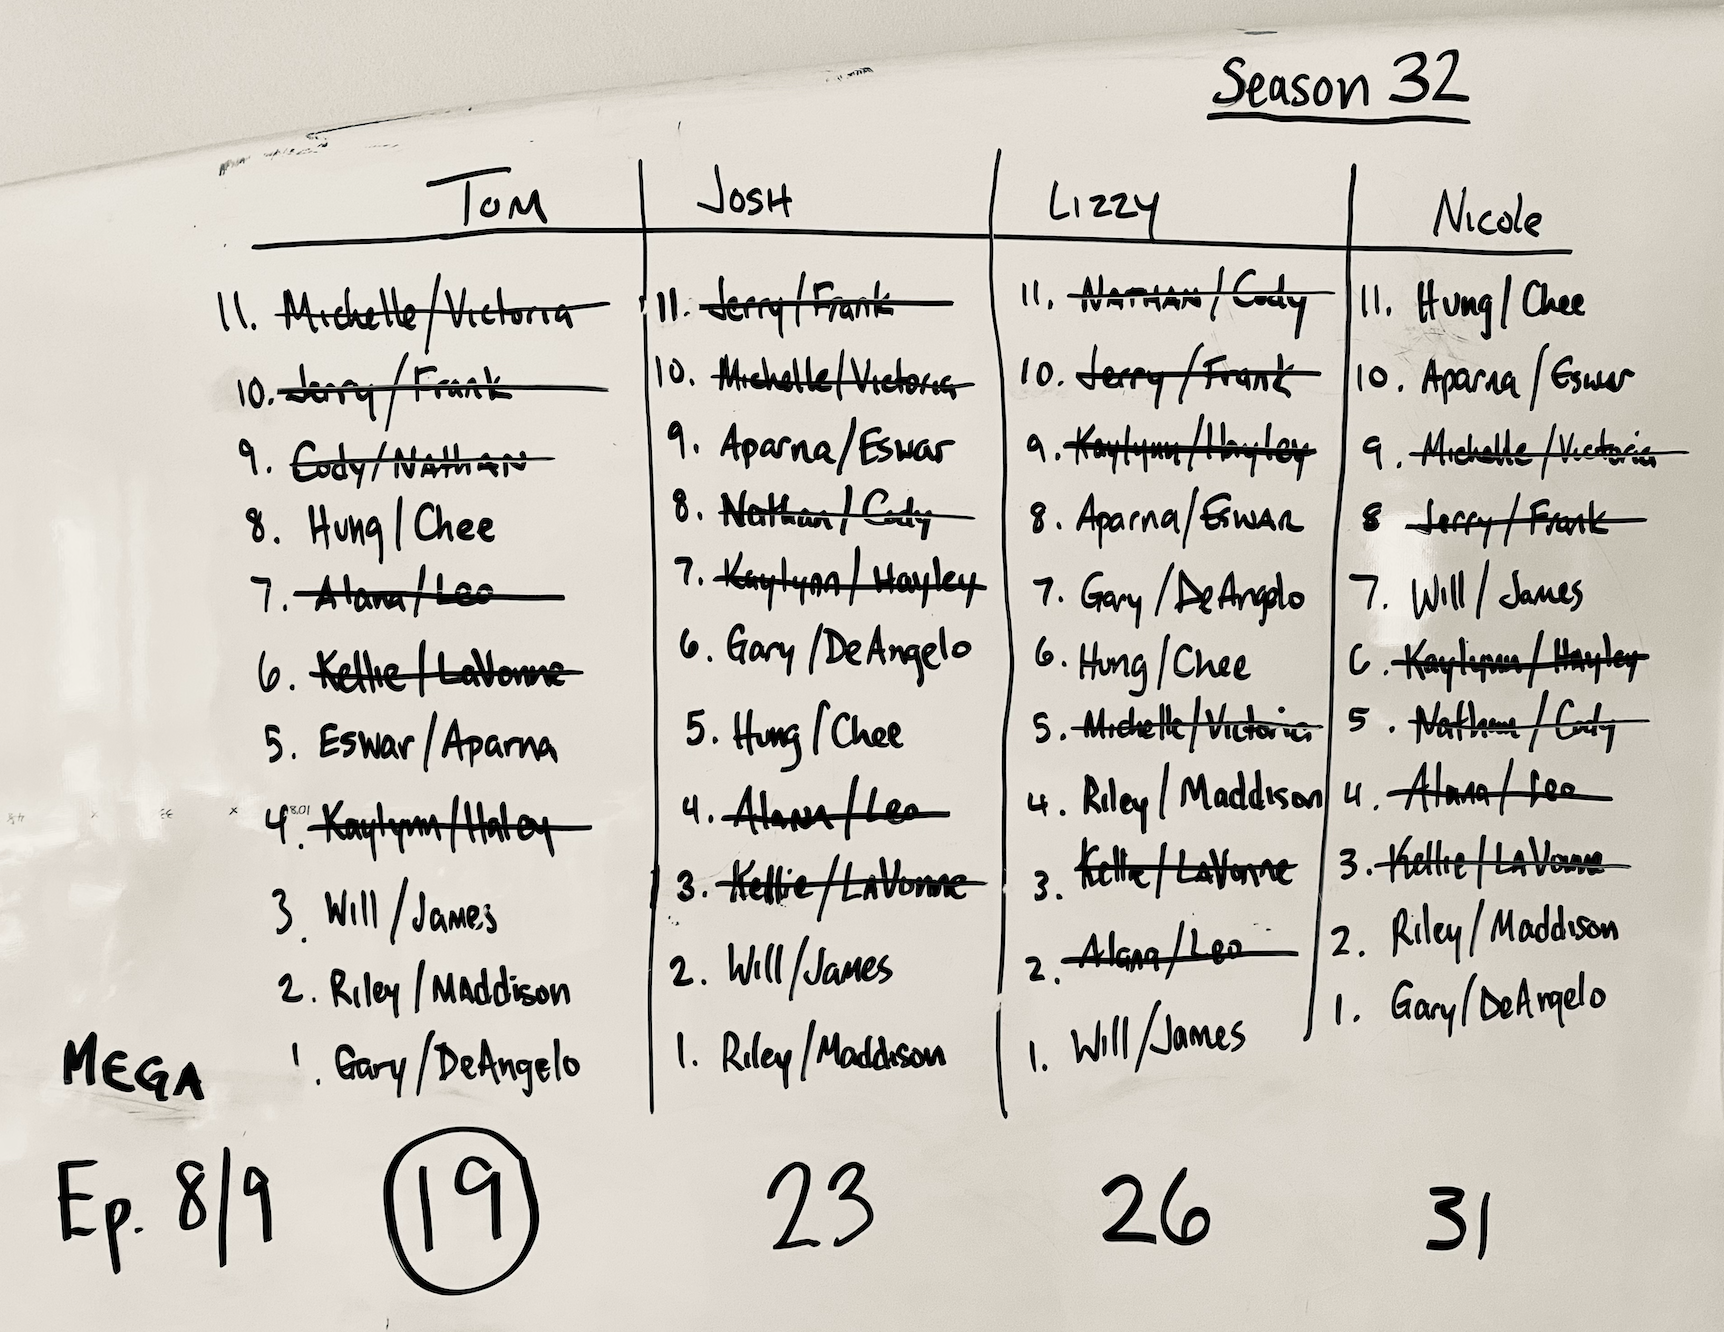 Season 32
TOM
11. Michelle/Victoria
10. Jerry/Frank
9. Cody/NATHAN
8. Hung/Chee
7. Alana/Leo
6. Kellie/LaVonne
5. Eswar/Aparna
4. Kaylynn/Haley
3. Will/James
2. Riley/MAddison
1. Gary/DeAngelo
JOSH
11. Jerry/Frank
10. Michelle/Victoria
9. Aparna/Eswar
8. Nathan/Cody
7. Kaylynn/Hayley
6. Gary/DeAngelo
5. Hung/Chee
4. Alana/Leo
3. Kellie/LaVonne
2. Will/James
1. Riley/Maddison
LIZZY
11. NATHAN/Cody
10. Jerry/Frank
9. Kaylynn/Hayley
8. Aparna/ESWAR
7. Gary/DeAngelo
6. Hung/Chee
5. Michelle/Victoria
4. Riley/Maddison
3. Kellie/LaVonne
2. Alana/Leo
1. Will/James
Nicole
11. Hung/Chee
10. Aparna/Eswar
9. Michelle/Victoria
8 Jerry/Frank
7. Will/James
6. Kaylynn/Hayley
5. Nathan/Cody
4. Alana/Leo
3. Kellie/LaVonne
2. Riley/Maddison
1. Gary/DeAngelo
MEGA
Ep. 8/9 19 23 26 31